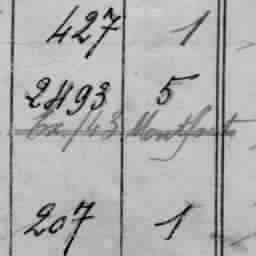 427 1
2493 5
/43 Montfort
207 1